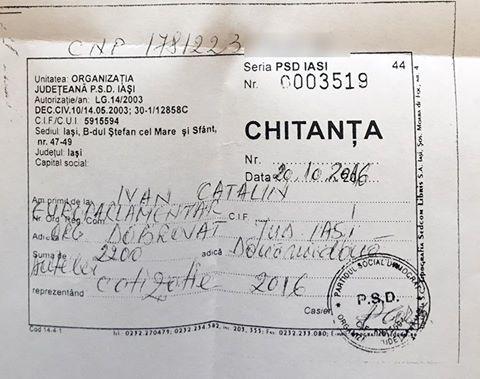 CNP 1781223
Unitatea: ORGANIZAȚIA
JUDEȚEANĂ P.S.D. IAȘI
Autorizație/an: LG.14/2003
DEC.CIV.10/14.05.2003; 30-1/12858C
C.I.F./C.U.I. 5915594
Sediul: Iași, B-dul Ștefan cel Mare și Sfânt,
nr. 47-49
Județul: Iași
Capital social:
Seria PSD IASI 44
Nr. 0003519
CHITANȚA
Nr.
Data 20.10.2016
Am primit de la IVAN CATALIN
EUROPARLAMENTAR
Nr. Ord. Reg. Com. C.I.F.
Adresa ORG DOBROVAT JUD IASI
Suma de 2200 adică Douamiidouă
sutelei
reprezentând cotizatie 2016
Casier,
PARTIDUL SOCIAL DEMOCRAT
P.S.D.
Cod 14-4-1 Tel.: 0232.270479; 0232.234.582, int. 203, 355; Fax: 0232.233.080; E-mail